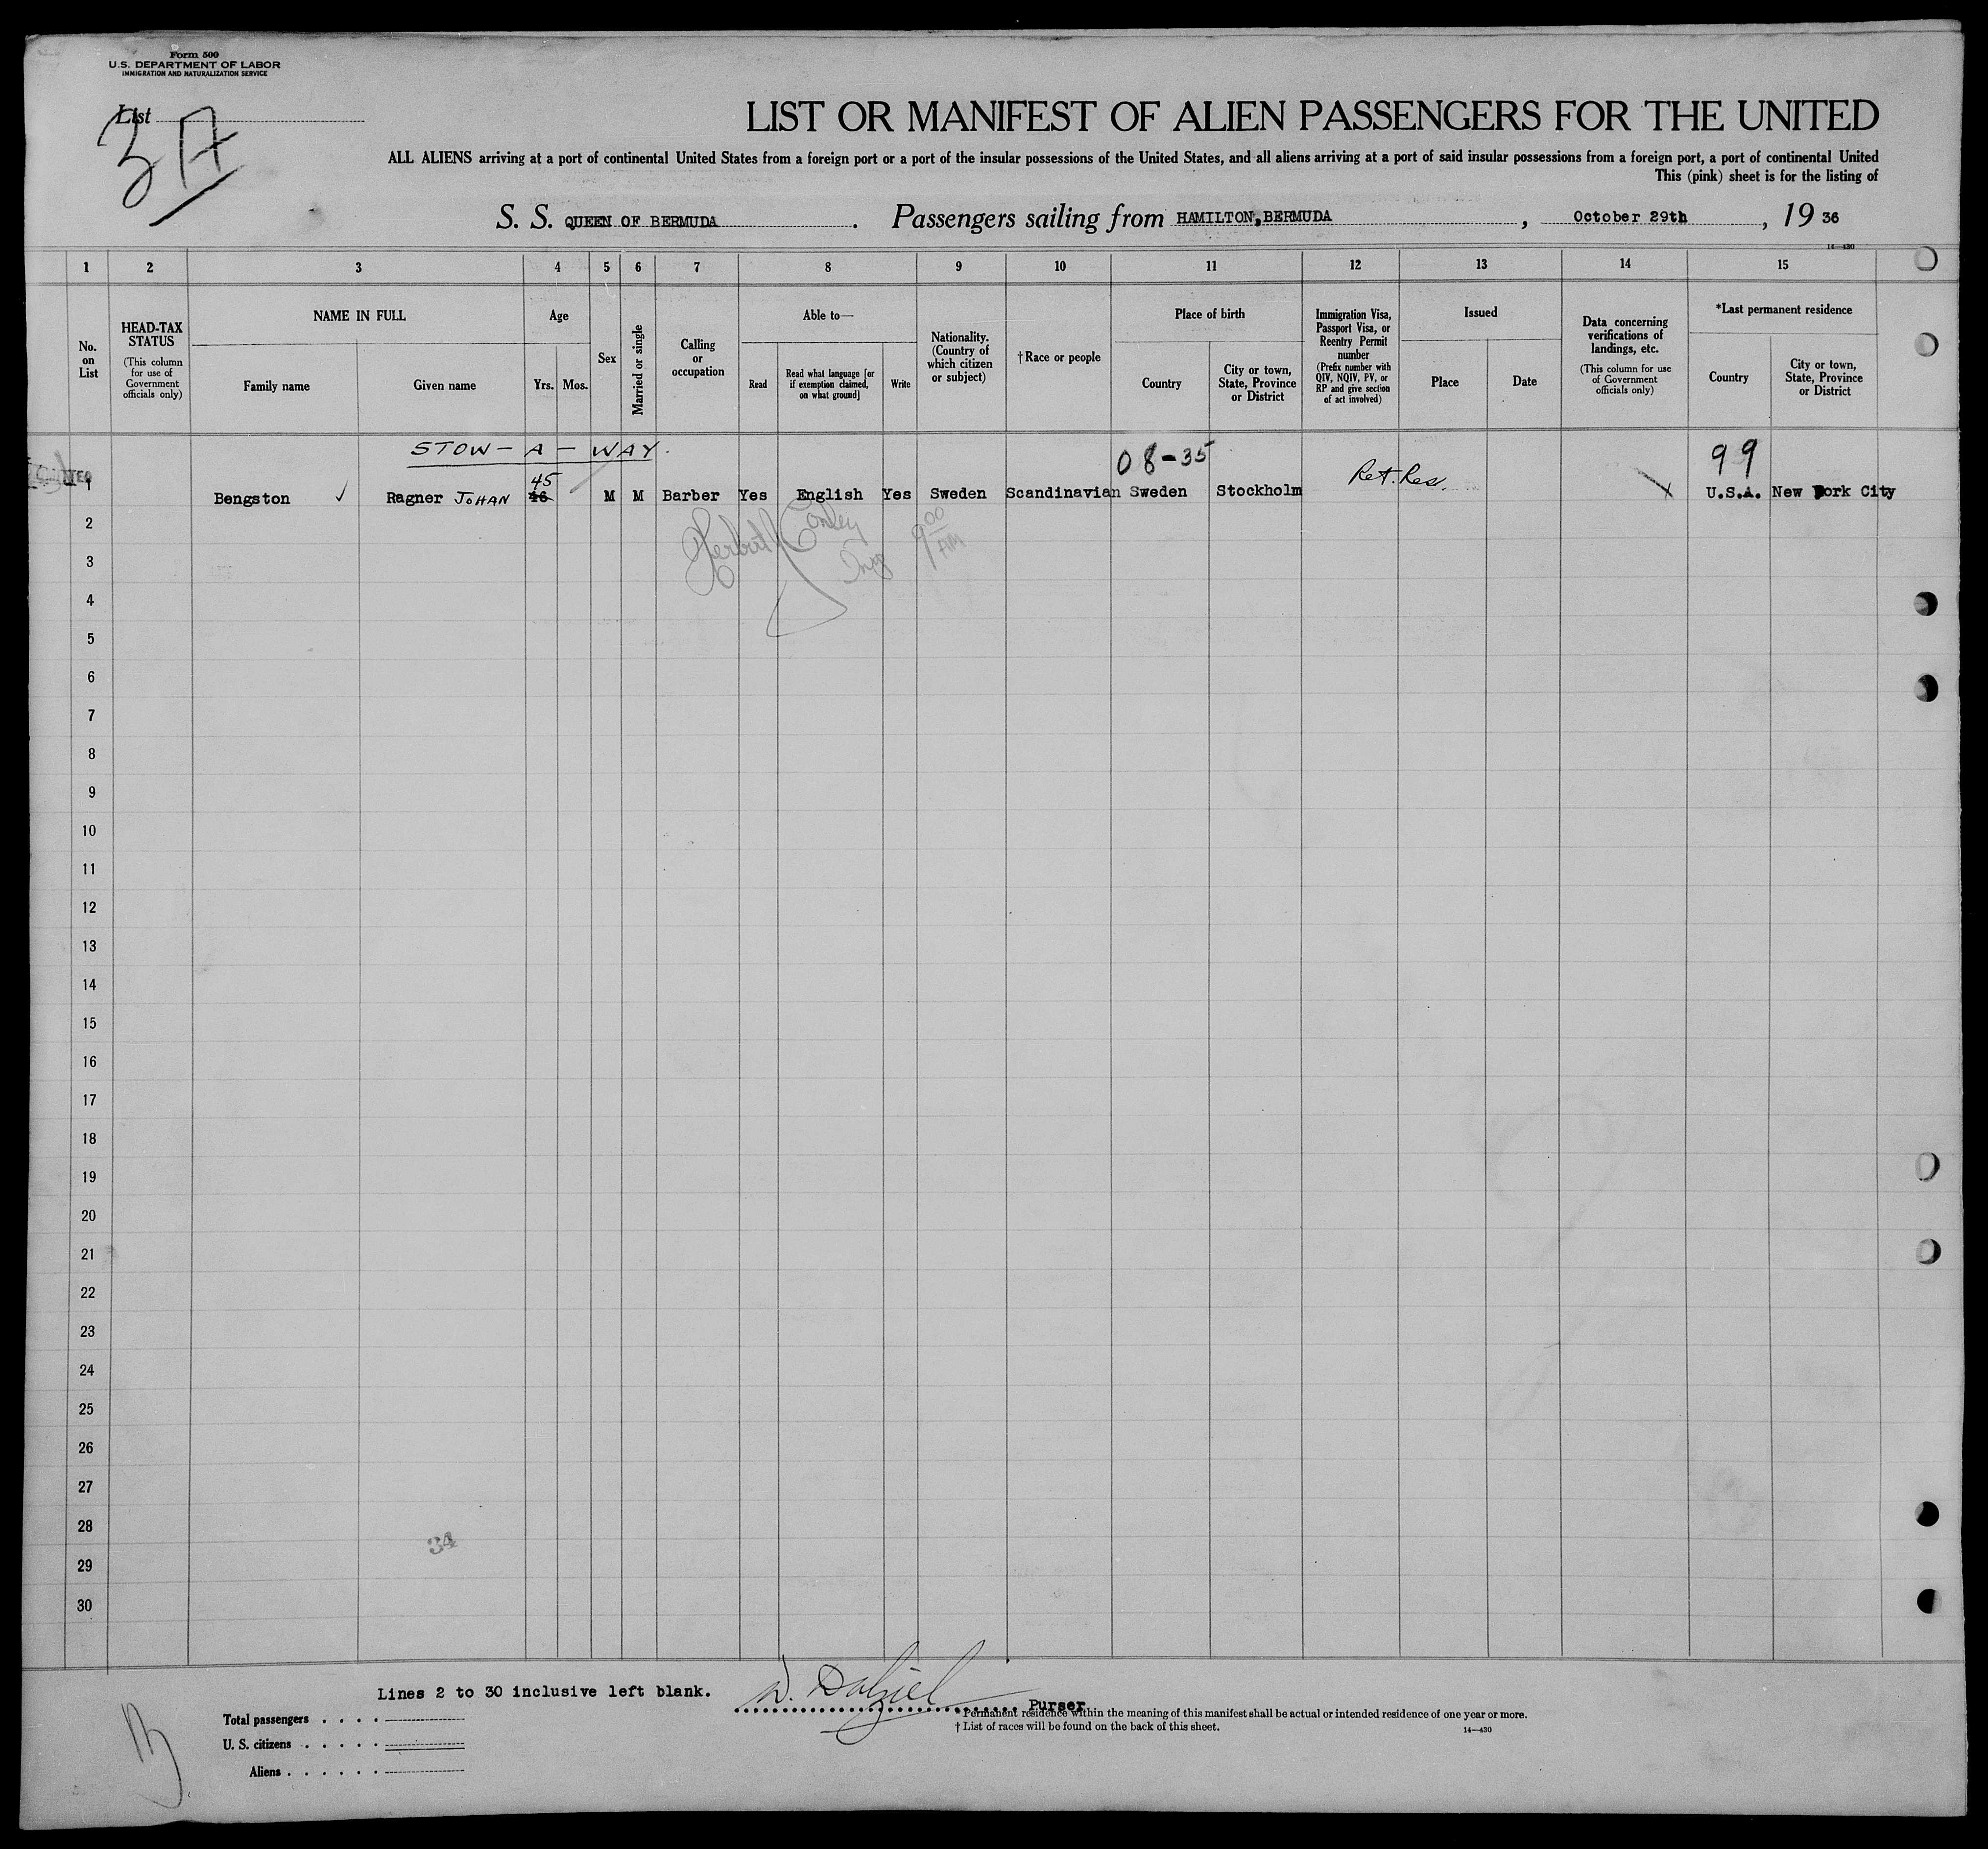 Form 500
U.S. DEPARTMENT OF LABOR
IMMIGRATION AND NATURALIZATION SERVICE
List
3A
LIST OR MANIFEST OF ALIEN PASSENGERS FOR THE UNITED
ALL ALIENS arriving at a port of continental United States from a foreign port or a port of the insular possessions of the United States, and all aliens arriving at a port of said insular possessions from a foreign port, a port of continental United
This (pink) sheet is for the listing of
S. S. QUEEN OF BERMUDA. Passengers sailing from HAMILTON, BERMUDA, October 29th, 19 36
14—430
1 2 3 4 5 6 7 8 9 10 11 12 13 14 15
No. on List
HEAD-TAX STATUS
(This column for use of Government officials only)
NAME IN FULL
Family name
Given name
Age
Yrs.
Mos.
Sex
Married or single
Calling or occupation
Able to—
Read
Read what language [or if exemption claimed, on what ground]
Write
Nationality. (Country of which citizen or subject)
†Race or people
Place of birth
Country
City or town, State, Province or District
Immigration Visa, Passport Visa, or Reentry Permit number
(Prefix number with QIV, NQIV, PV, or RP and give section of act involved)
Issued
Place
Date
Data concerning verifications of landings, etc.
(This column for use of Government officials only)
*Last permanent residence
Country
City or town, State, Province or District
STOW-A-WAY.
08-35
99
45
1 Bengston ✓ Ragner JOHAN 46 M M Barber Yes English Yes Sweden Scandinavian Sweden Stockholm Ret. Res. U.S.A. New York City
Conley
Insp 9 00 AM
2
3
4
5
6
7
8
9
10
11
12
13
14
15
16
17
18
19
20
21
22
23
24
25
26
27
28
34
29
30
Lines 2 to 30 inclusive left blank.
W. Dalziel Purser
Total passengers . . . .
U. S. citizens . . . . .
Aliens . . . . . .
* Permanent residence within the meaning of this manifest shall be actual or intended residence of one year or more.
† List of races will be found on the back of this sheet.
14—430